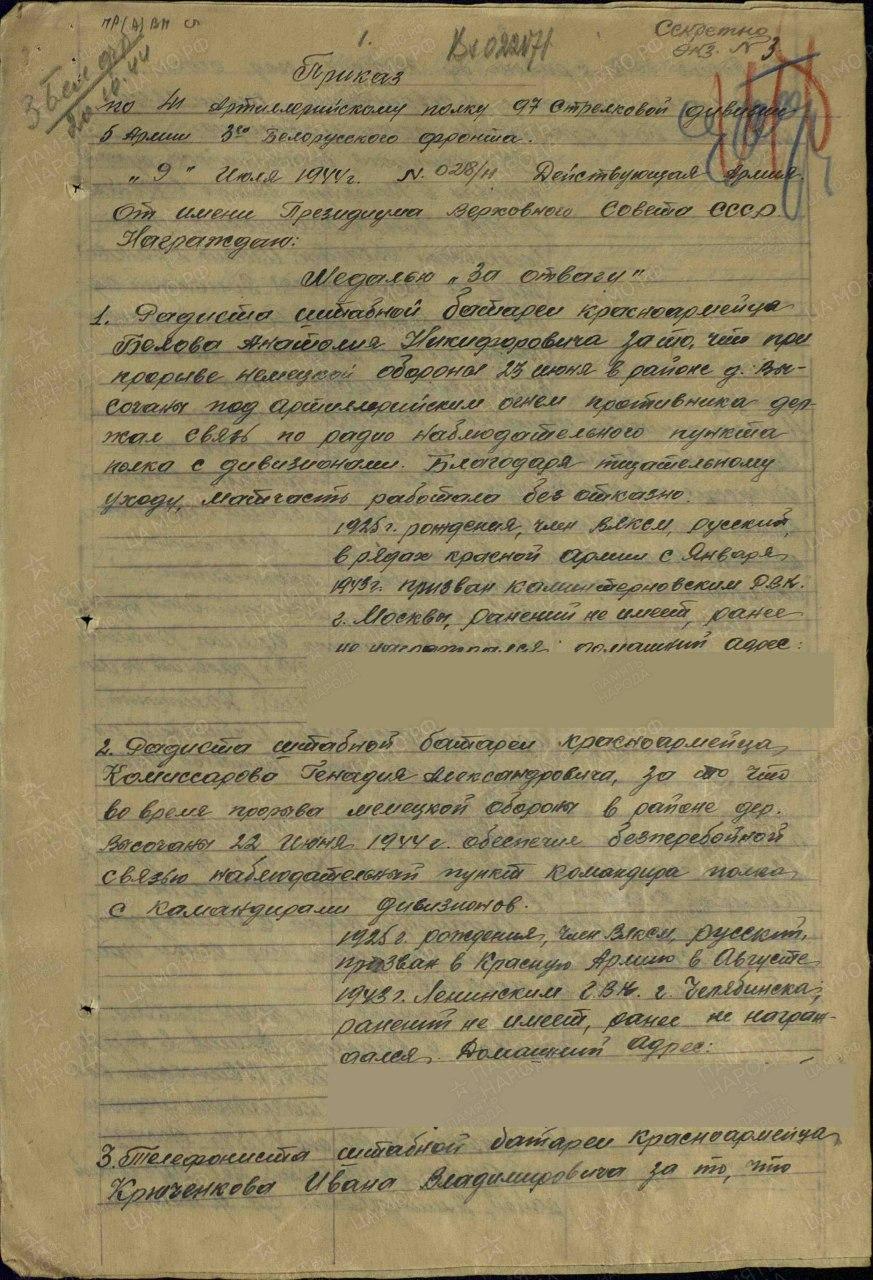 ПР(А) ВМ
1.
Вх 022171
Секретно
Экз. N 3
3 Бел фр
Приказ
по 41 Артиллерийскому полку 97 Стрелковой дивизии
5 Армии 3го Белорусского фронта.
"9" Июля 1944г. N. 028/н Действующая Армия.
От имени Президиума Верховного Совета СССР
Награждаю:
Медалью „За отвагу"
1. Радиста штабной батареи красноармейца
Белова Анатолия Никифоровича за то, что при
прорыве немецкой обороны 23 июня в районе д. Вы-
сочаны под артиллерийским огнем противника дер-
жал связь по радио наблюдательного пункта
полка с дивизионами. Благодаря тщательному
уходу, матчасть работала без отказно.
1925г. рождения, член ВЛКСМ, русский,
в рядах красной армии с Января
1943г. призван Каминтерновским РВК.
г. Москвы, ранений не имеет, ранее
не награждался, домашний адрес:
2. Радиста штабной батареи красноармейца
Комиссарова Генадия Александровича, за то что
во время прорыва немецкой обороны в районе дер.
Высочаны 22 Июня 1944г. обеспечил безперебойной
связью наблюдательный пункт командира полка
с командирами дивизионов.
1925 г. рождения, член ВЛКСМ, русский,
призван в Красную Армию в Августе
1943г. Ленинским Г.В.К. г. Челябинска,
ранений не имеет, ранее не награж-
дался. Домашний адрес:
3. Телефониста штабной батареи красноармейца
Крюченкова Ивана Владимировича за то, что